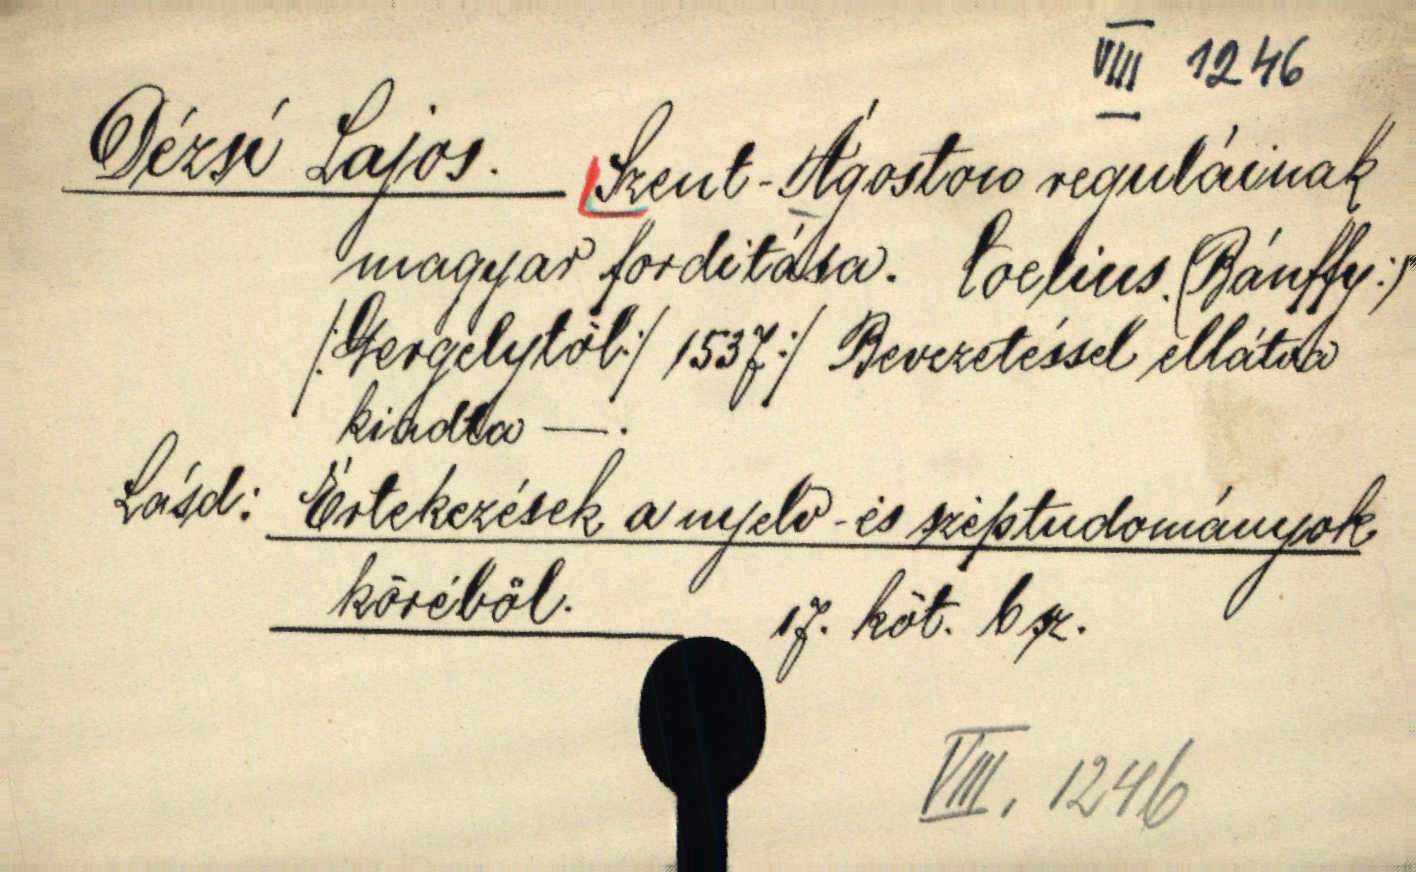 VIII 1246
Dézsi Lajos. Szent-Ágoston reguláinak
magyar forditása. Coelius (Bánffy:)
/:Gergelytől:/ 1537:/ Bevezetéssel ellátva
kiadta —.
Lásd: Értekezések a nyelv-és széptudományok
köréből. 17. köt. 6 sz.
VIII. 1246